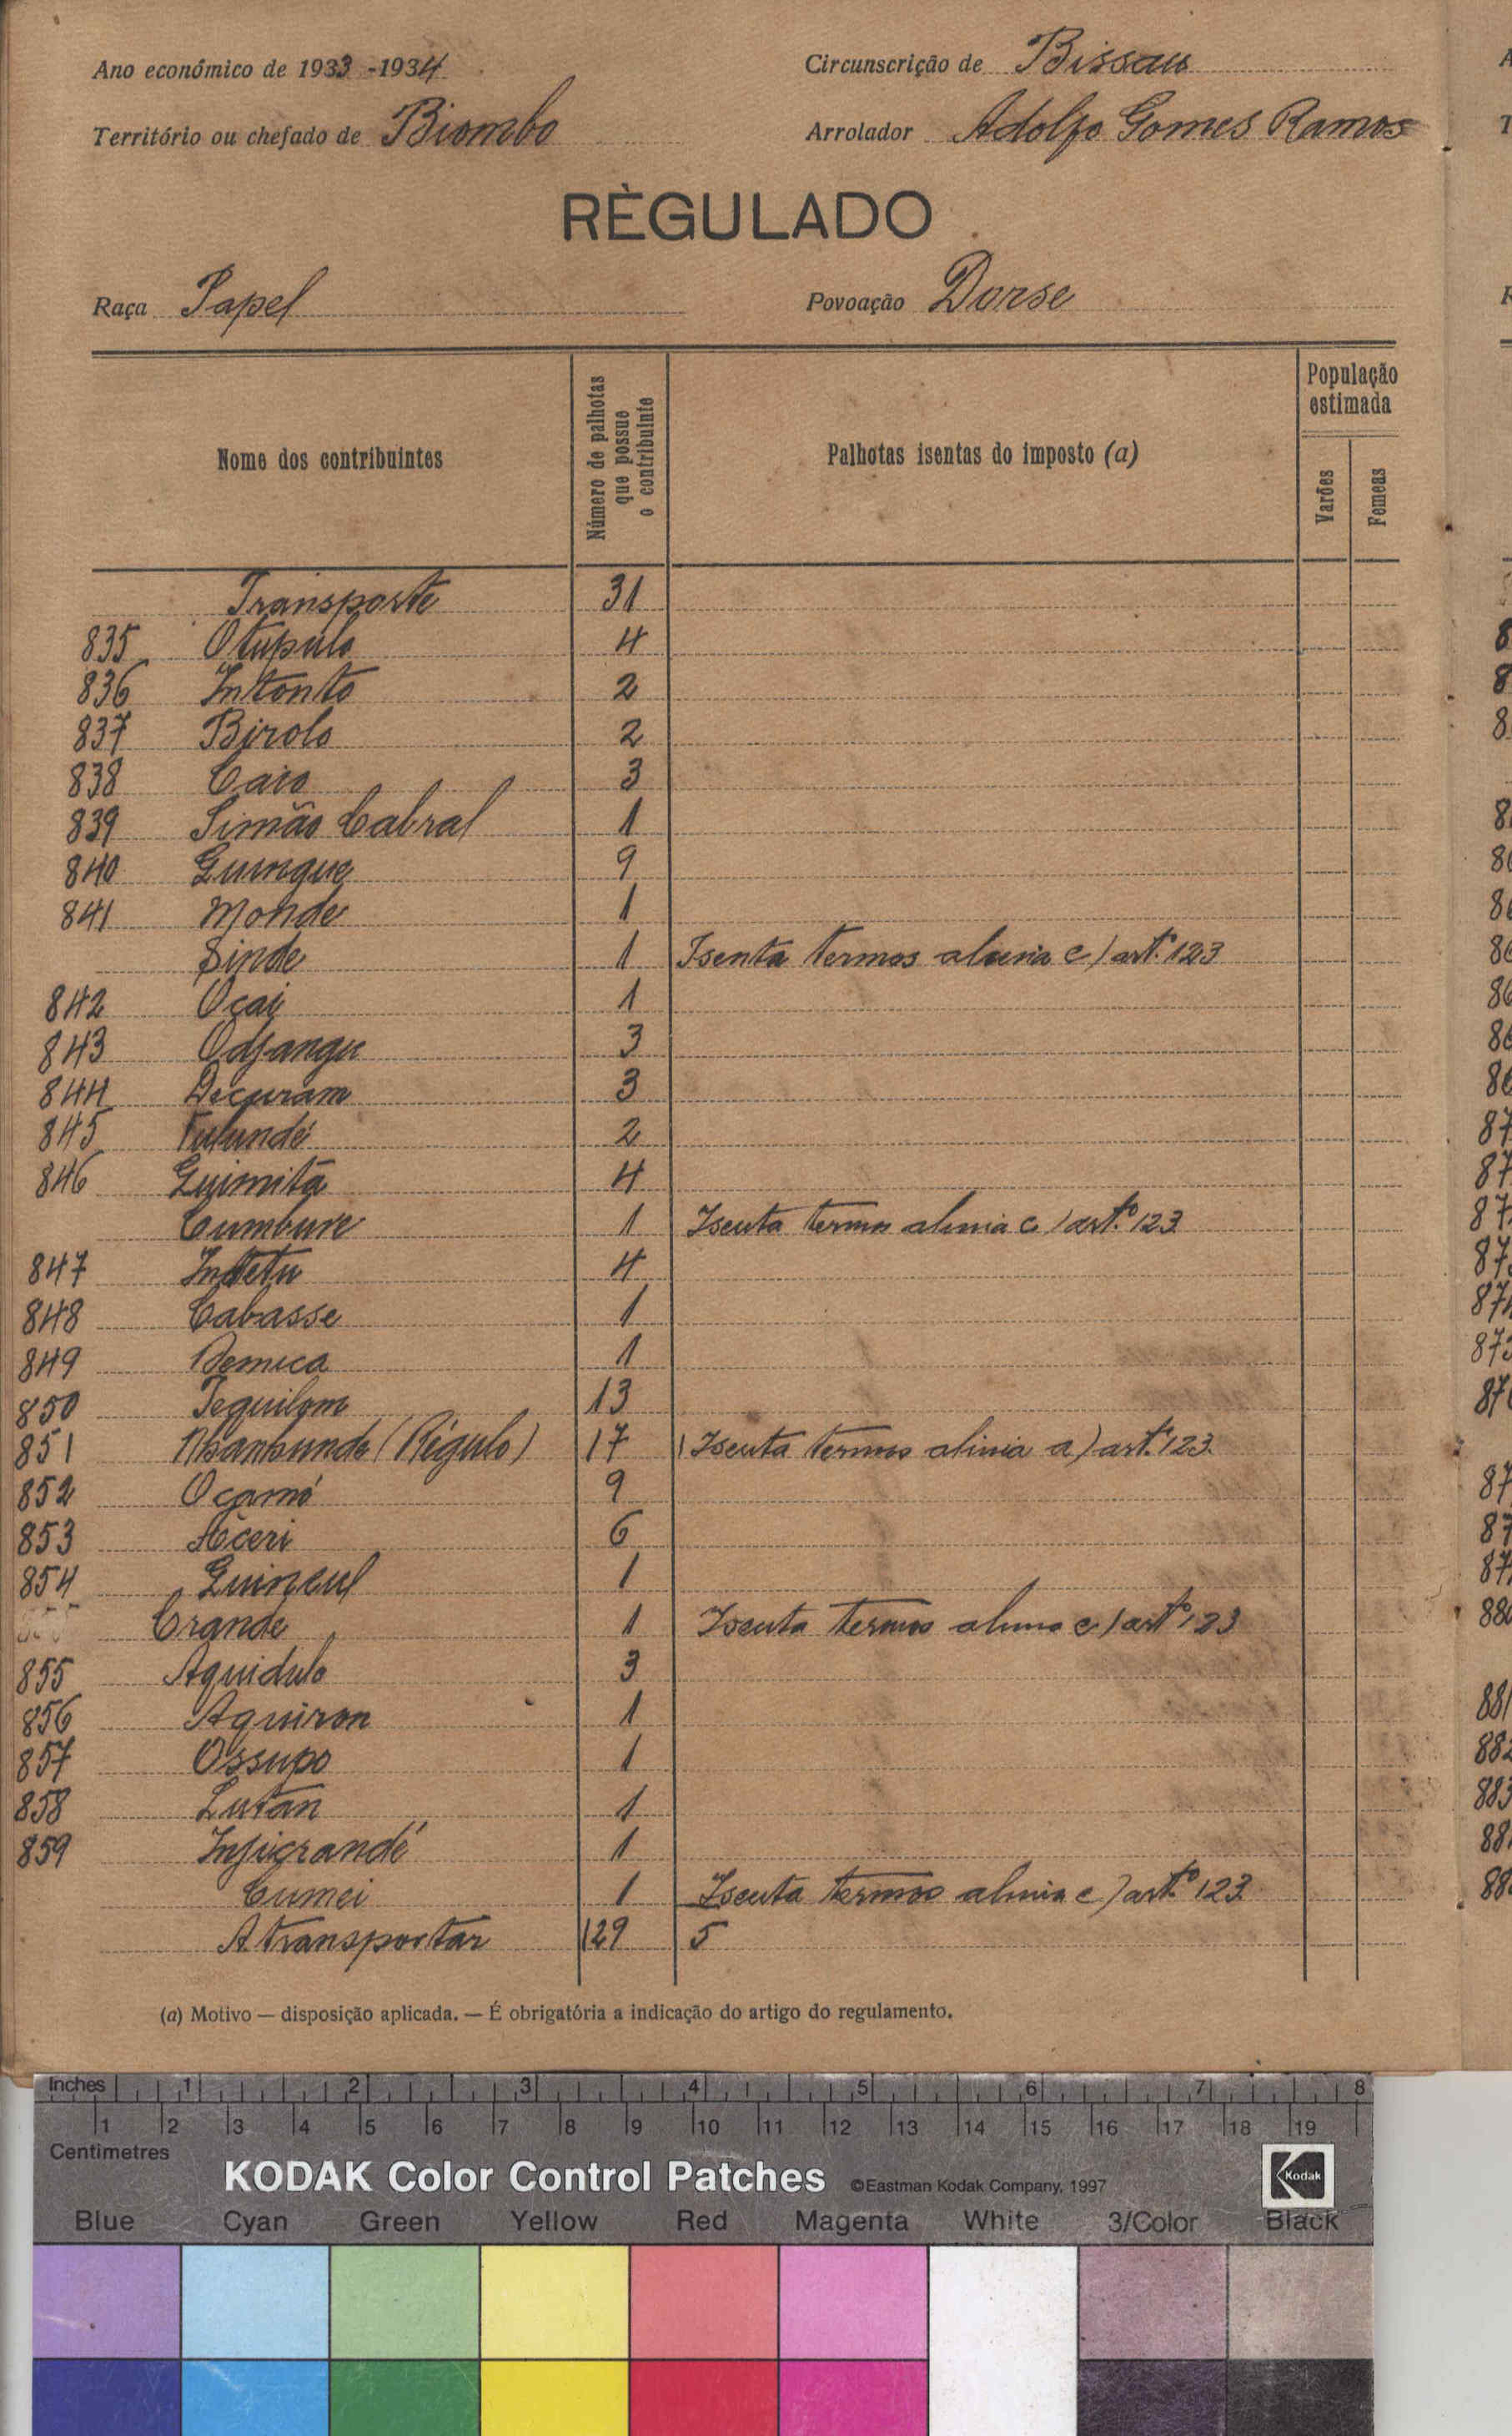 Ano económico de 1933-1934
Circunscrição de Bissau
Território ou chefado de Biombo
Arrolador Adolfo Gomes Ramos
RÈGULADO
Raça Papel
Povoação Dorse
Nome dos contribuintes
Número de palhotas que possue o contribuinte
Palhotas isentas do imposto (a)
População estimada
Varões
Femeas
Transporte 31
835 Otupulo 4
836 Intonto 2
837 Birolo 2
838 Caio 3
839 Simão Cabral 1
840 Guingue 9
841 Monde 1
Sinde 1 Isenta termos alinia c) art.º 123
842 Ocai 1
843 Odjangu 3
844 Decuram 3
845 Tulundé 2
846 Guimita 4
Cumbure 1 Isenta termos alinia c) art.º 123
847 Indetu 4
848 Cabasse 1
849 Demica 1
850 Tequilom 13
851 Nhanhundo (Régulo) 17 1 Isenta termos alinia a) art.º 123.
852 Ocamó 9
853 6
854 Guincul 1
Crande 1 Isenta termos alinia c) art.º 123
855 Aquidulo 3
856 Aquiron 1
857 Ossupo 1
858 Lutan 1
859 Injicrandé 1
Cumei 1 Isenta termos alinia c) art.º 123.
A transportar 129 5
(a) Motivo — disposição aplicada. — É obrigatória a indicação do artigo do regulamento.
Inches 1 2 3 4 5 6 7 8
1 2 3 4 5 6 7 8 9 10 11 12 13 14 15 16 17 18 19
Centimetres
KODAK Color Control Patches ©Eastman Kodak Company, 1997 Kodak
Blue Cyan Green Yellow Red Magenta White 3/Color Black